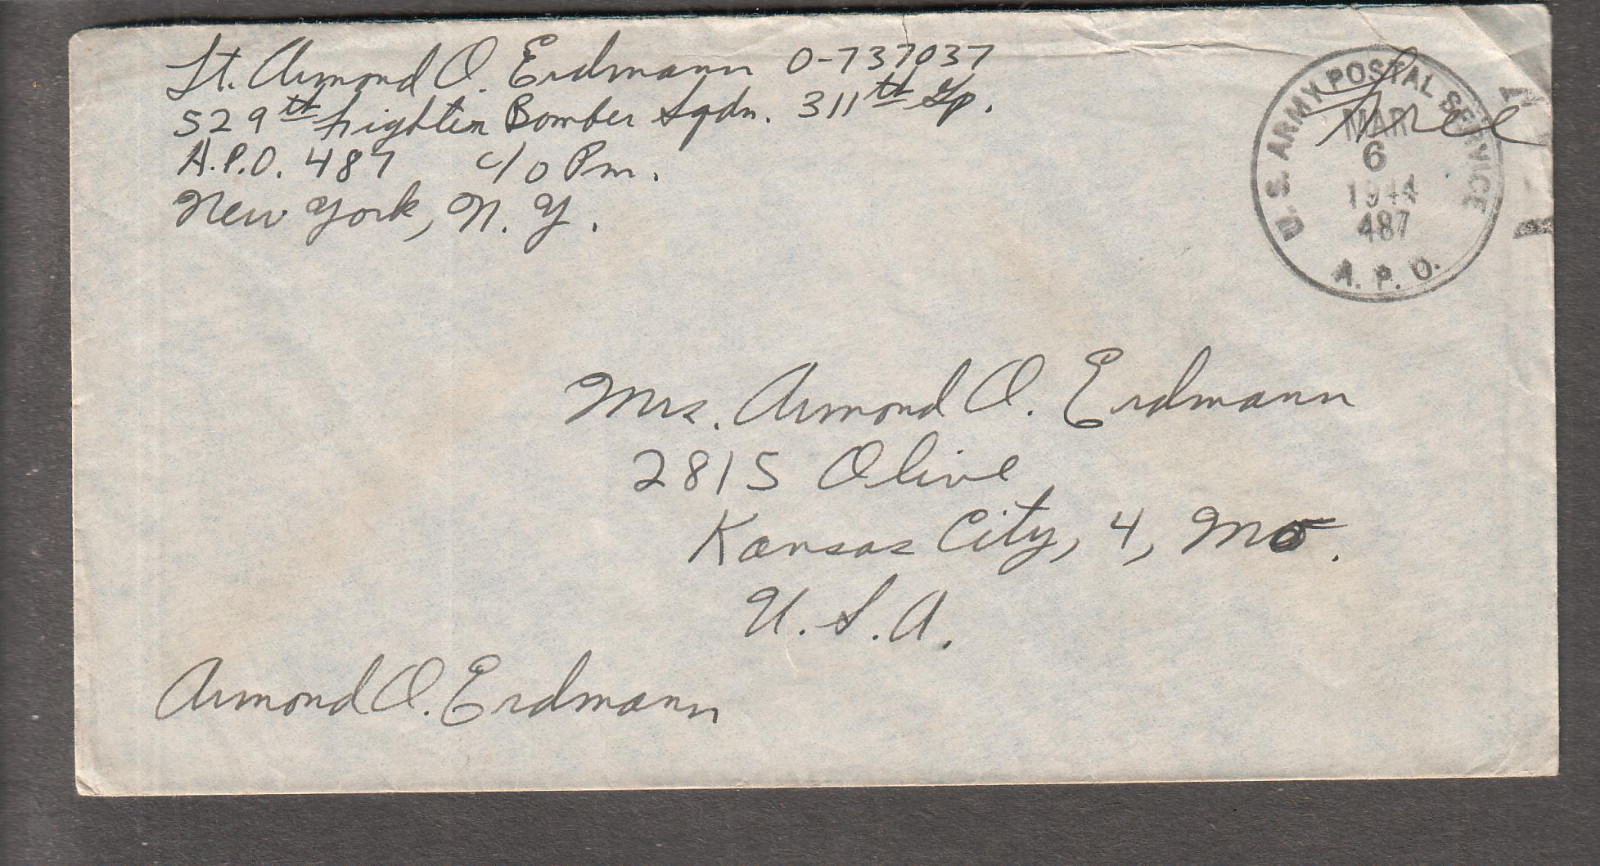 Lt. Armond O. Erdmann O-737037
529th Fighter Bomber Sqdn. 311th Gp.
A.P.O. 487 c/o Pm.
New York, N.Y.
Free
U.S. ARMY POSTAL SERVICE
MAR
6
1944
487
A.P.O.
Mrs. Armond O. Erdmann
2815 Olive
Kansas City, 4, Mo.
U.S.A.
Armond O. Erdmann